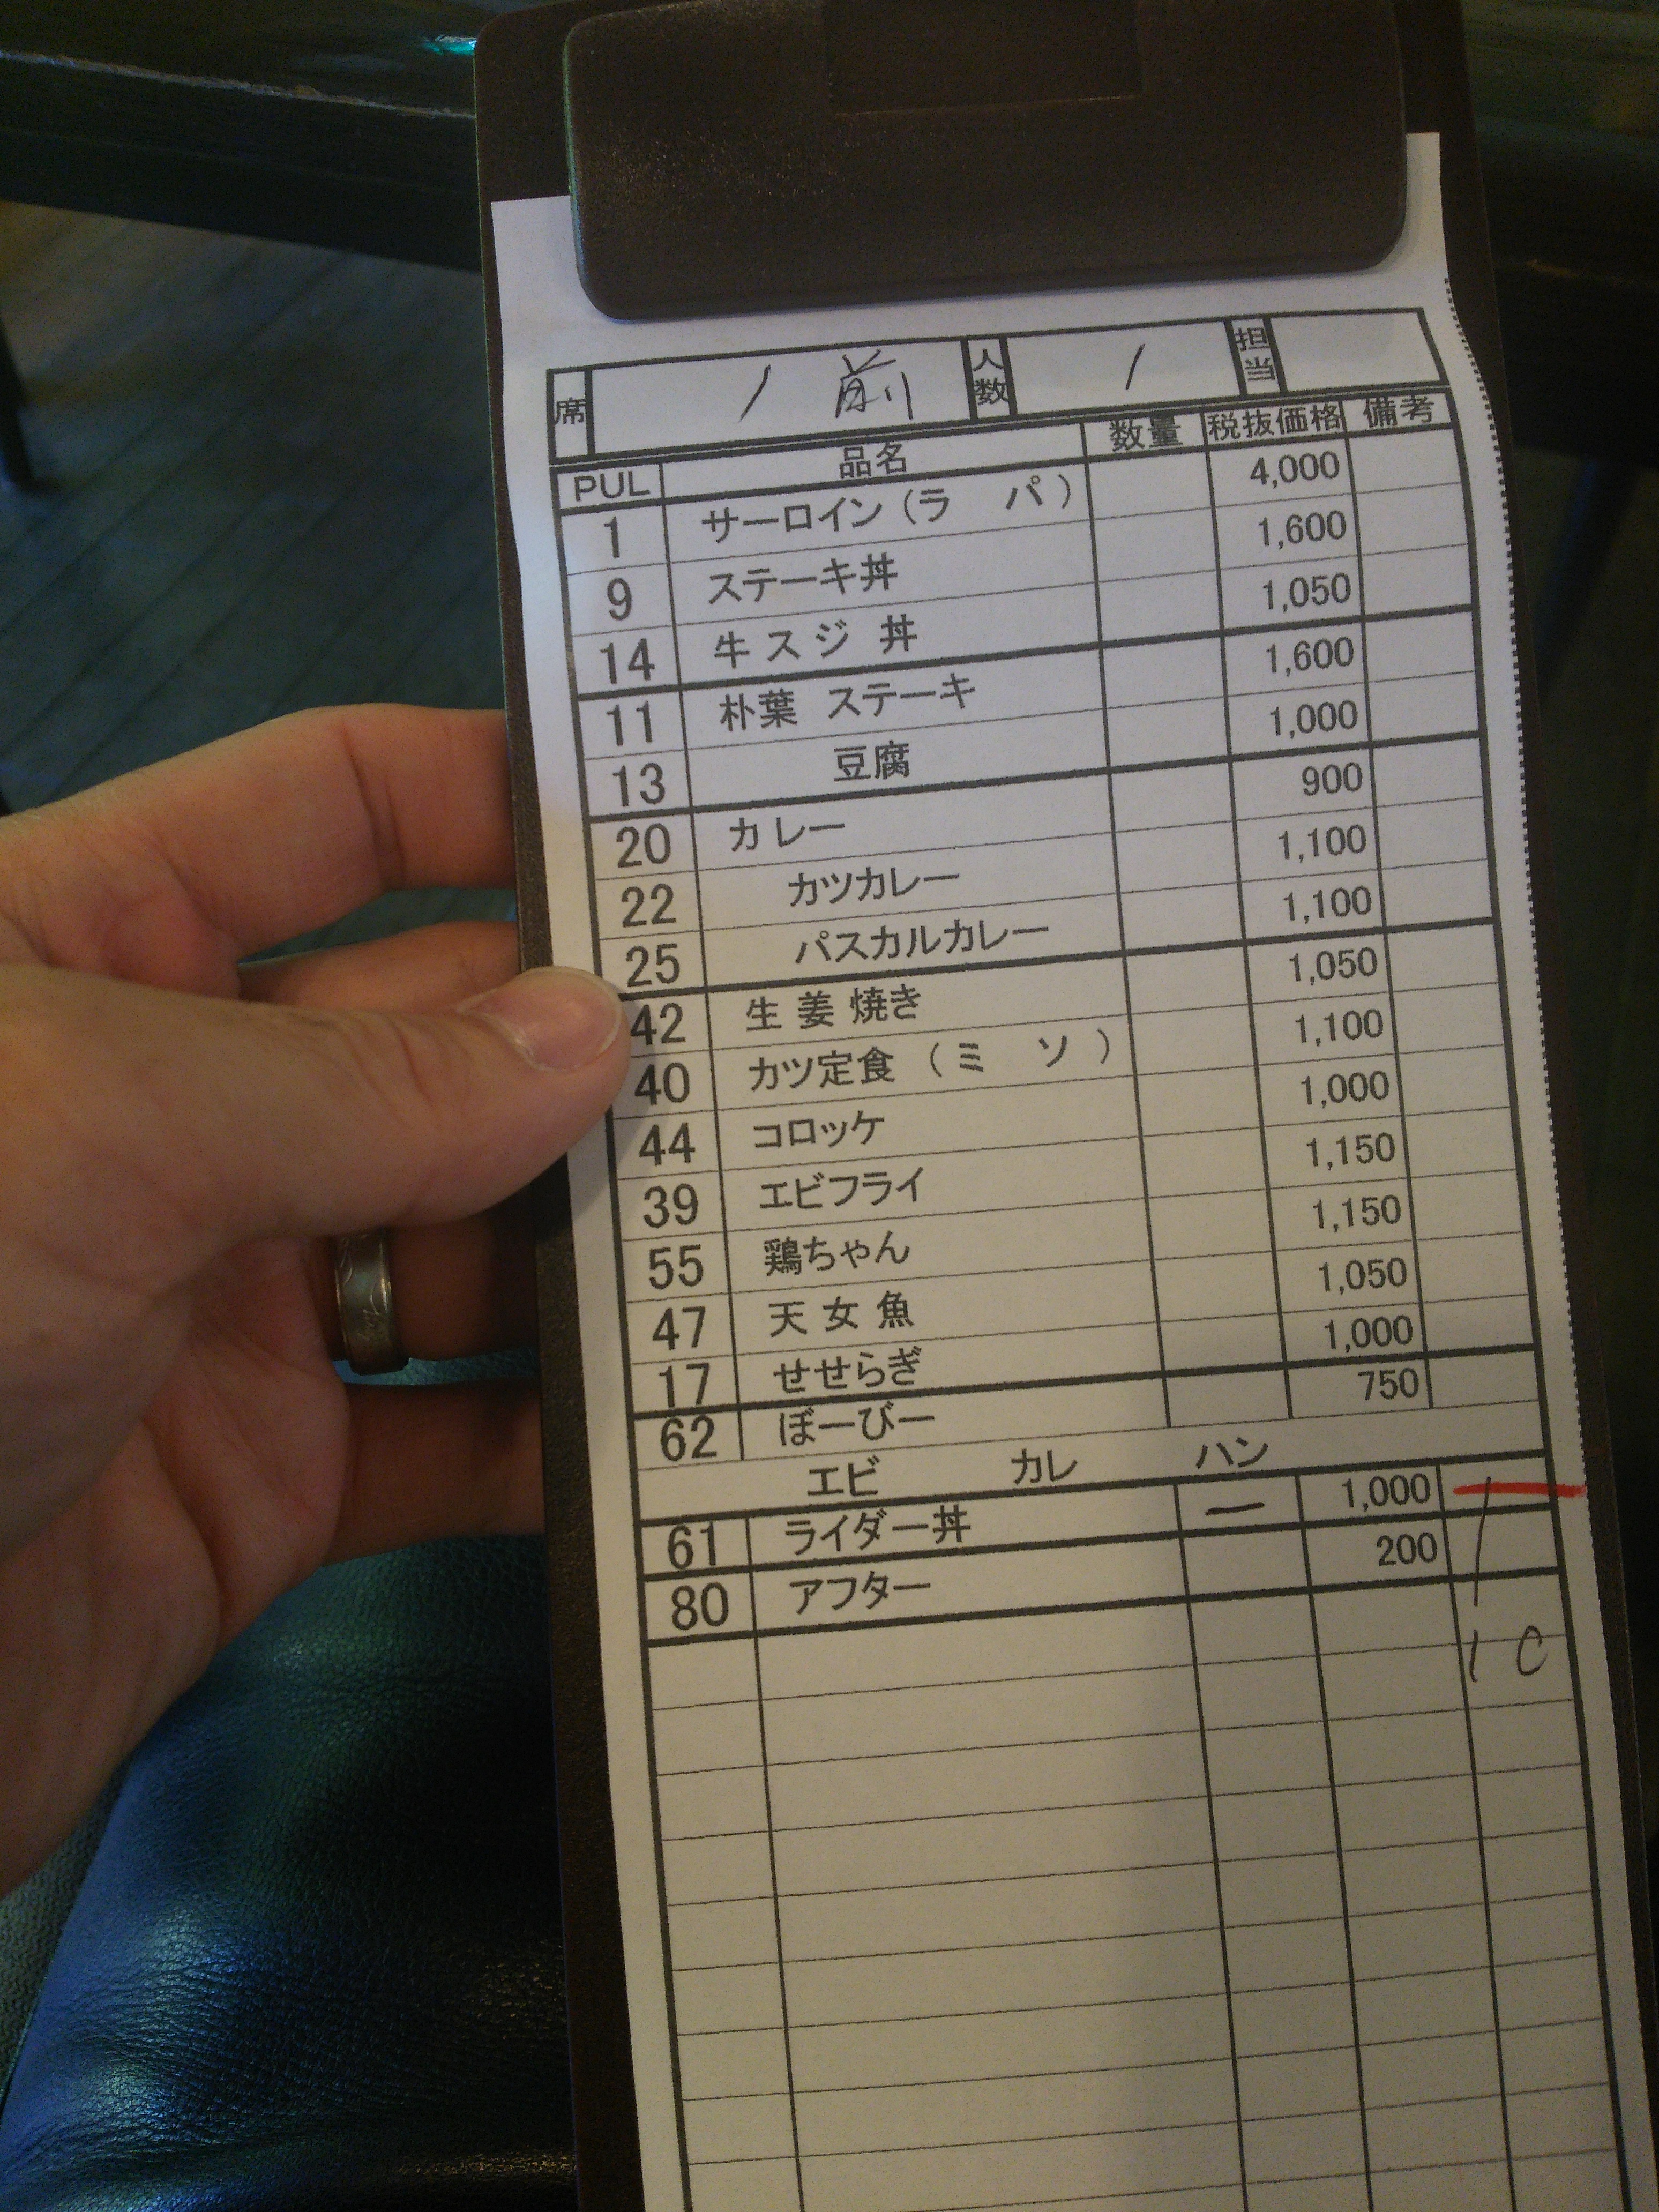 席 1 前 人数 1 担当
PUL 品名 数量 税抜価格 備考
1 サーロイン(ラ パ) 4,000
9 ステーキ丼 1,600
14 牛スジ 丼 1,050
11 朴葉 ステーキ 1,600
13 豆腐 1,000
20 カレー 900
22 カツカレー 1,100
25 パスカルカレー 1,100
42 生姜焼き 1,050
40 カツ定食 (ミ ソ) 1,100
44 コロッケ 1,000
39 エビフライ 1,150
55 鶏ちゃん 1,150
47 天女魚 1,050
17 せせらぎ 1,000
62 ぼーびー 750
エビ カレ ハン
61 ライダー丼 一 1,000
80 アフター 200